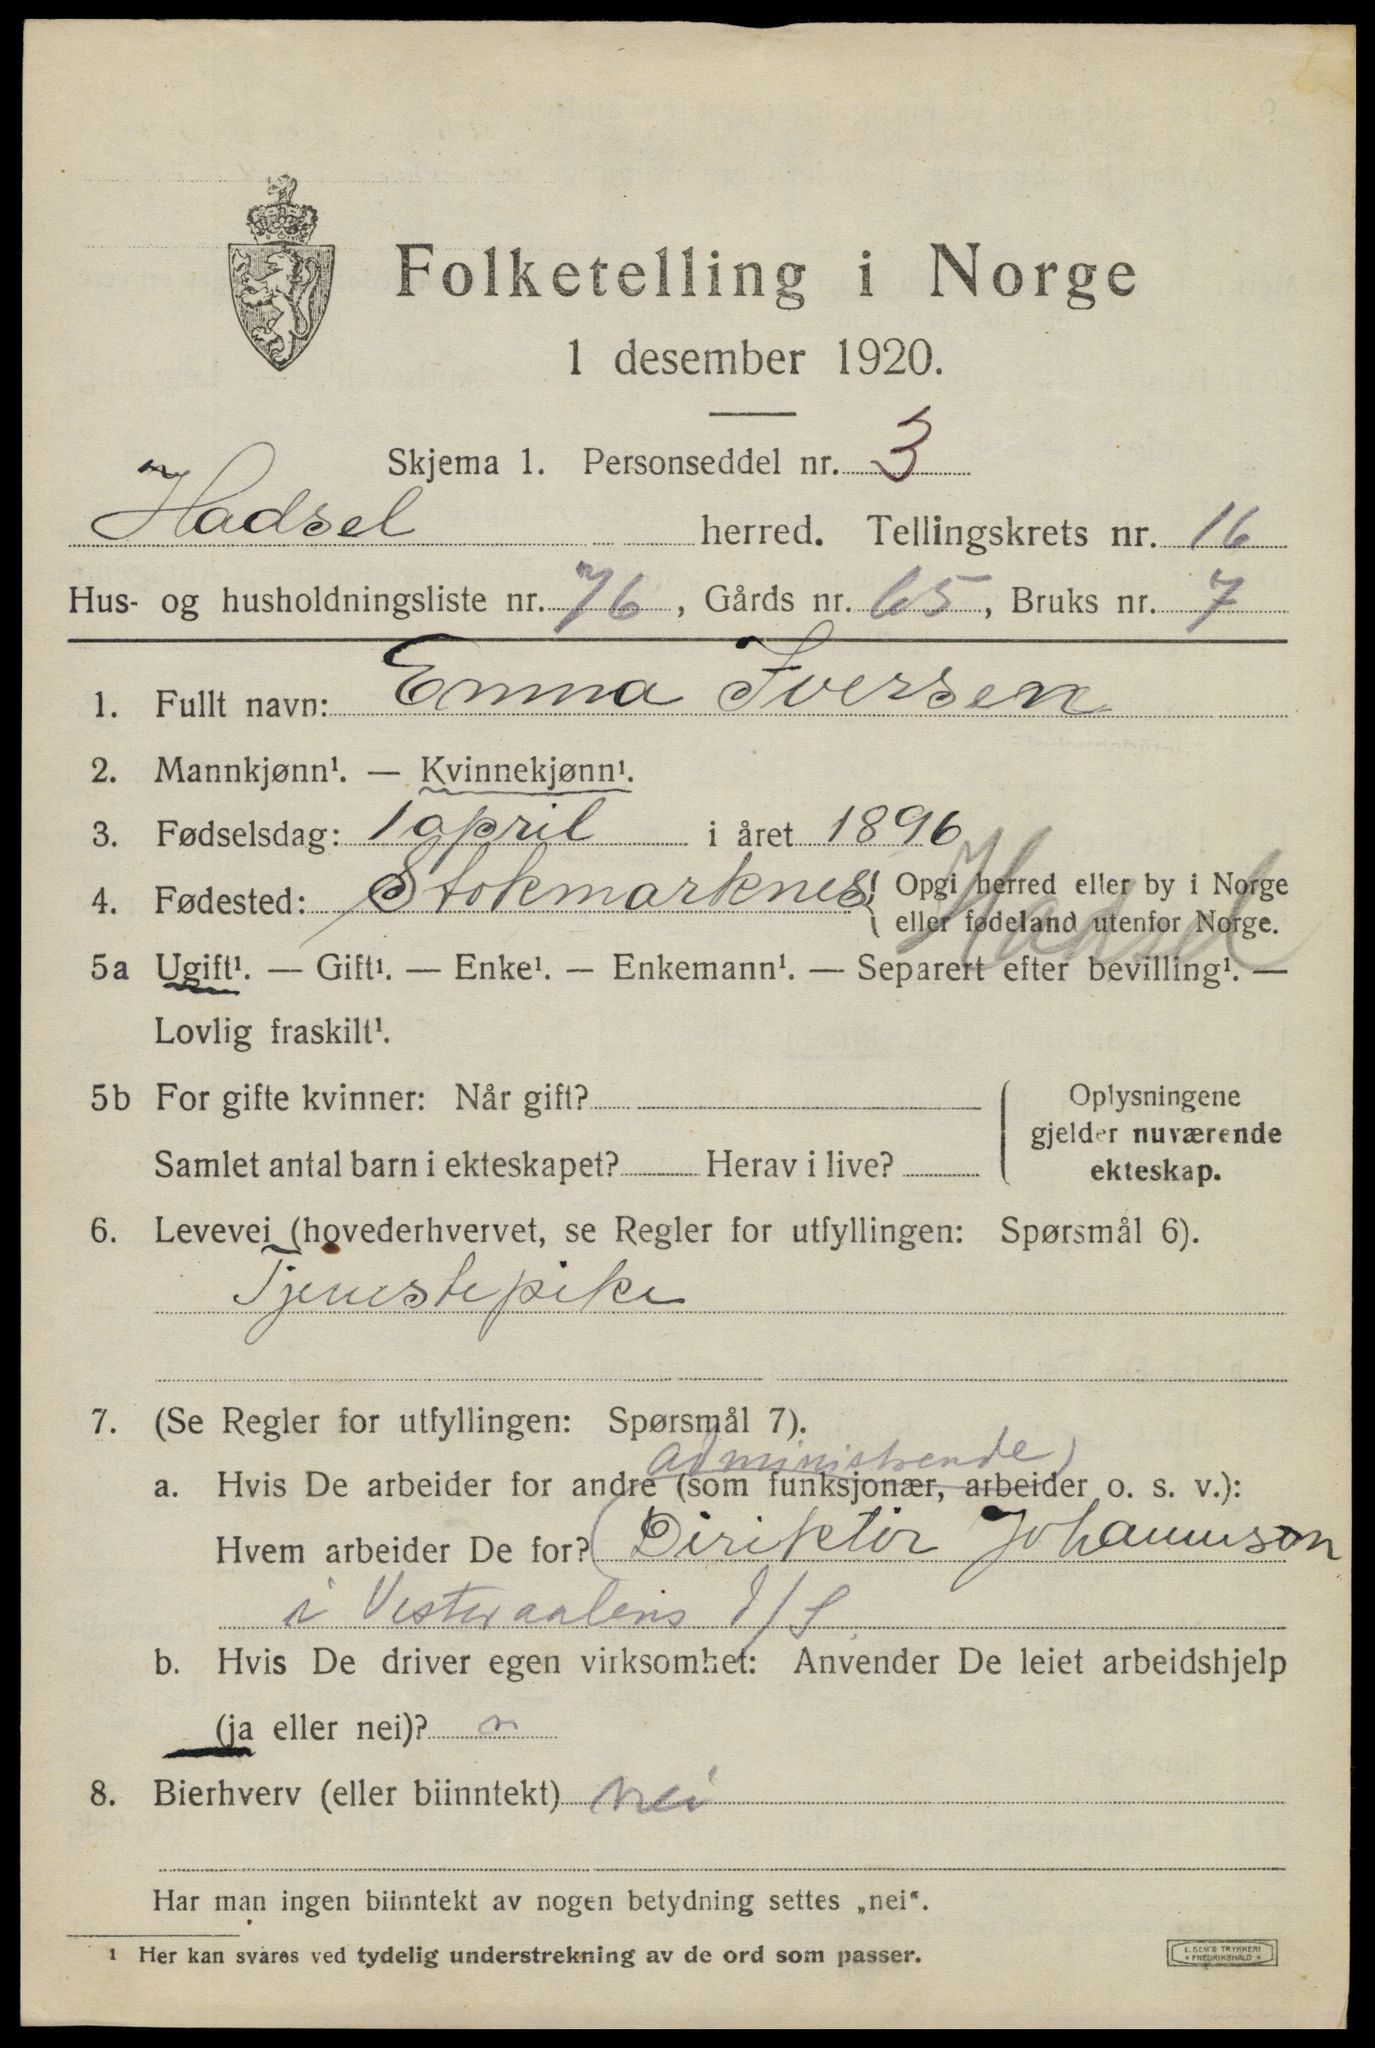 Folketelling i Norge
1 desember 1920.
Skjema 1. Personseddel nr. 3
Hadsel herred. Tellingskrets nr. 16
Hus- og husholdningsliste nr. 76, Gårds nr. 65, Bruks nr. 7
1. Fullt navn: Emma Iversen
2. Mannkjønn¹. — Kvinnekjønn¹.
3. Fødselsdag: 1 april i året 1896
4. Fødested: Stokmarknes { Opgi herred eller by i Norge
eller fødeland utenfor Norge.
Hadsel
5a Ugift¹. — Gift¹. — Enke¹. — Enkemann¹. — Separert efter bevilling¹. —
Lovlig fraskilt¹.
5b For gifte kvinner: Når gift?
Samlet antal barn i ekteskapet? Herav i live?
Oplysningene
gjelder nuværende
ekteskap.
6. Levevei (hovederhvervet, se Regler for utfyllingen: Spørsmål 6).
Tjenestepike
7. (Se Regler for utfyllingen: Spørsmål 7).
administrende)
a. Hvis De arbeider for andre (som funksjonær, arbeider o. s. v.):
Hvem arbeider De for? (Diriktør Johannson
i Vesteraalens D/S
b. Hvis De driver egen virksomhet: Anvender De leiet arbeidshjelp
(ja eller nei)? n
8. Bierhverv (eller biinntekt) nei
Har man ingen biinntekt av nogen betydning settes „nei“.
1 Her kan svares ved tydelig understrekning av de ord som passer.
E. SEM'S TRYKKERI
* FREDRIKSHALD *